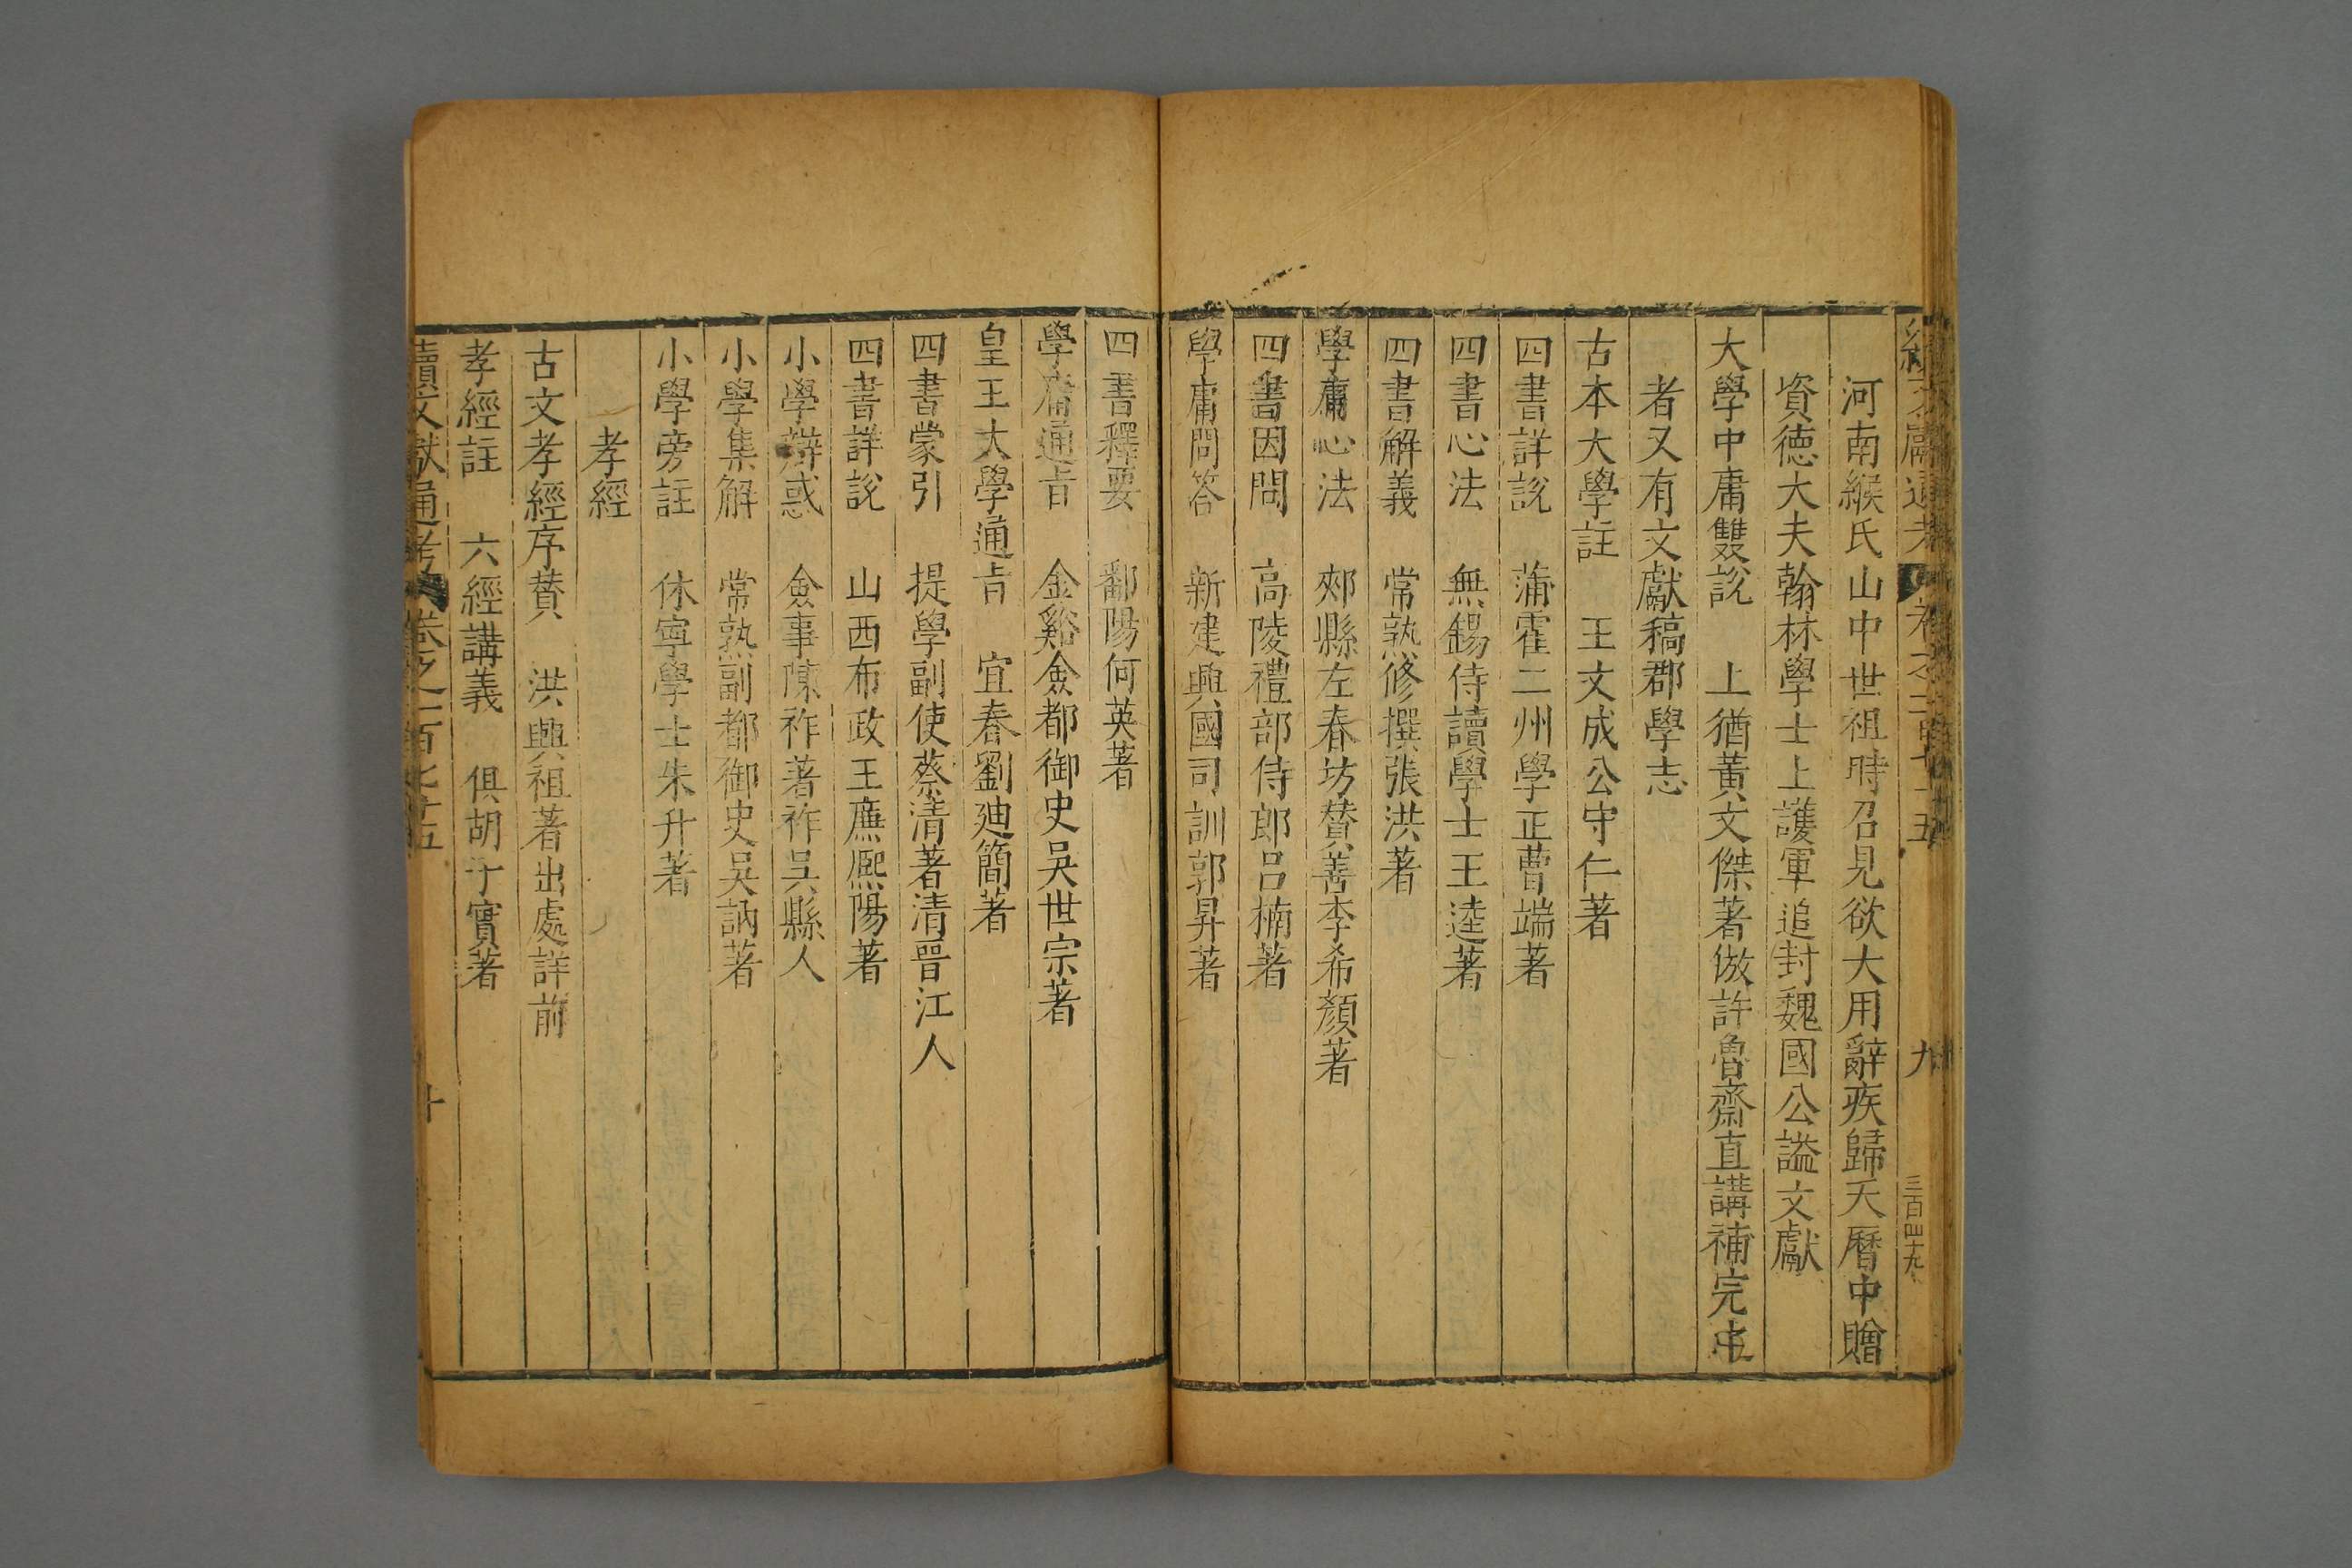 續文獻通考 卷之一百七十五 九 三百四十九
河南緱氏山中世祖時召見欲大用辭疾歸天曆中贈
資德大夫翰林學士上護軍追封魏國公謚文獻
大學中庸雙說 上猶黃文傑著倣許魯齋直講補完
者又有文獻稿郡學志
古本大學註 王文成公守仁著
四書詳說 蒲霍二州學正曹端著
四書心法 無錫侍讀學士王達著
四書解義 常熟修撰張洪著
學庸心法 郟縣左春坊贊善李希顏著
四書因問 高陵禮部侍郎呂楠著
學庸問答 新建興國司訓郭昇著
四書釋要 鄱陽何英著
學庸通旨 金谿僉都御史吳世宗著
皇王大學通旨 宜春劉廸簡著
四書蒙引 提學副使蔡清著清晉江人
四書詳說 山西布政王廉熈陽著
小學辯惑 僉事陳祚著祚吳縣人
小學集解 常熟副都御史吳訥著
小學旁註 休寧學士朱升著
孝經
古文孝經序贊 洪興祖著出處詳前
孝經註 六經講義 俱胡子實著
續文獻通考 卷之一百七十五 十